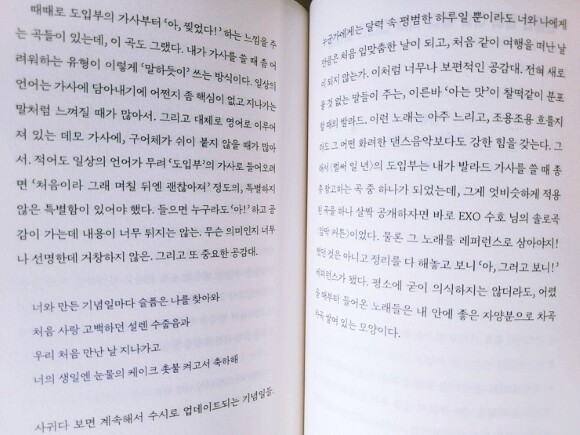 때때로 도입부의 가사부터 '아, 찢었다!' 하는 느낌을 주
는 곡들이 있는데, 이 곡도 그랬다. 내가 가사를 쓸 때 좀 어
려워하는 유형이 이렇게 '말하듯이' 쓰는 방식이다. 일상의
언어는 가사에 담아내기에 어쩐지 좀 핵심이 없고 지나가는
말처럼 느껴질 때가 많아서. 그리고 대체로 영어로 이루어
져 있는 데모 가사에, 구어체가 쉬이 붙지 않을 때가 많아
서. 적어도 일상의 언어가 무려 '도입부'의 가사로 들어오려
면 '처음이라 그래 며칠 뒤엔 괜찮아져' 정도의, 특별하지
않은 특별함이 있어야 했다. 들으면 누구라도 '아!' 하고 공
감이 가는데 내용이 너무 튀지는 않는. 무슨 의미인지 너무
나 선명한데 거창하지 않은. 그리고 또 중요한 공감대.
너와 만든 기념일마다 슬픔은 나를 찾아와
처음 사랑 고백하던 설렌 수줍음과
우리 처음 만난 날 지나가고
너의 생일엔 눈물의 케이크 촛불 켜고서 축하해
사귀다 보면 계속해서 수시로 업데이트되는 기념일들.
누군가에게는 달력 속 평범한 하루일 뿐이라도 너와 나에게
만큼은 처음 입맞춤한 날이 되고, 처음 같이 여행을 떠난 날
이 되지 않는가. 이처럼 너무나 보편적인 공감대. 전혀 새로
울 것 없는 말들이 주는, 이른바 '아는 맛'이 찰떡같이 분포
할 때의 발라드. 이런 노래는 아주 느리고, 조용조용 흐를지
라도 그 어떤 화려한 댄스음악보다도 강한 힘을 갖는다. 그
래서 〈벌써 일 년〉의 도입부는 내가 발라드 가사를 쓸 때 종
종 참고하는 곡 중 하나가 되었는데, 그게 엇비슷하게 적용
된 곡을 하나 살짝 공개하자면 바로 EXO 수호 님의 솔로곡
〈암막 커튼〉이었다. 물론 그 노래를 레퍼런스로 삼아야지!
했던 것은 아니고 정리를 다 해놓고 보니 '아, 그러고 보니!'
레퍼런스가 됐다. 평소에 굳이 의식하지는 않더라도, 어렸
을 때부터 들어온 노래들은 내 안에 좋은 자양분으로 차곡
차곡 쌓여 있는 모양이다.